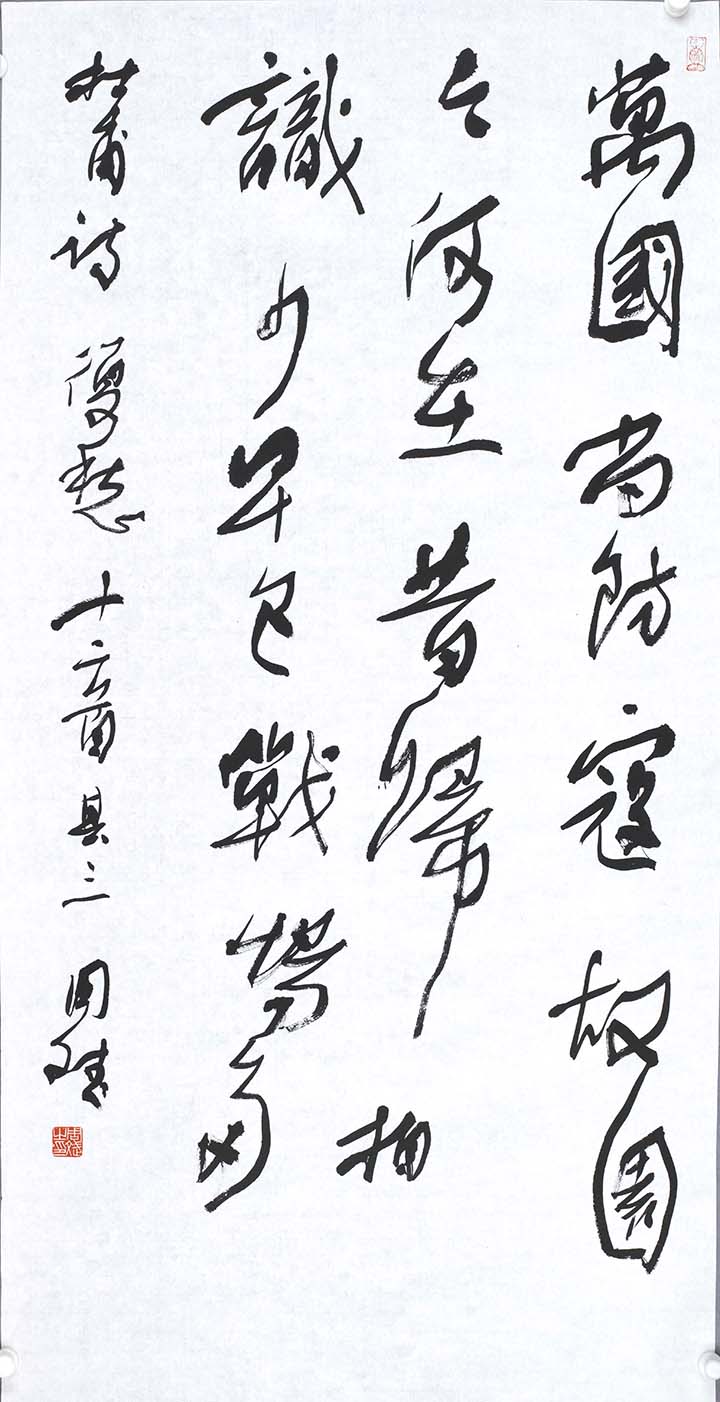 萬國尚防寇故園
今何在昔歸相
識少早已戰場多
杜甫詩 復愁 十二首 其三 周